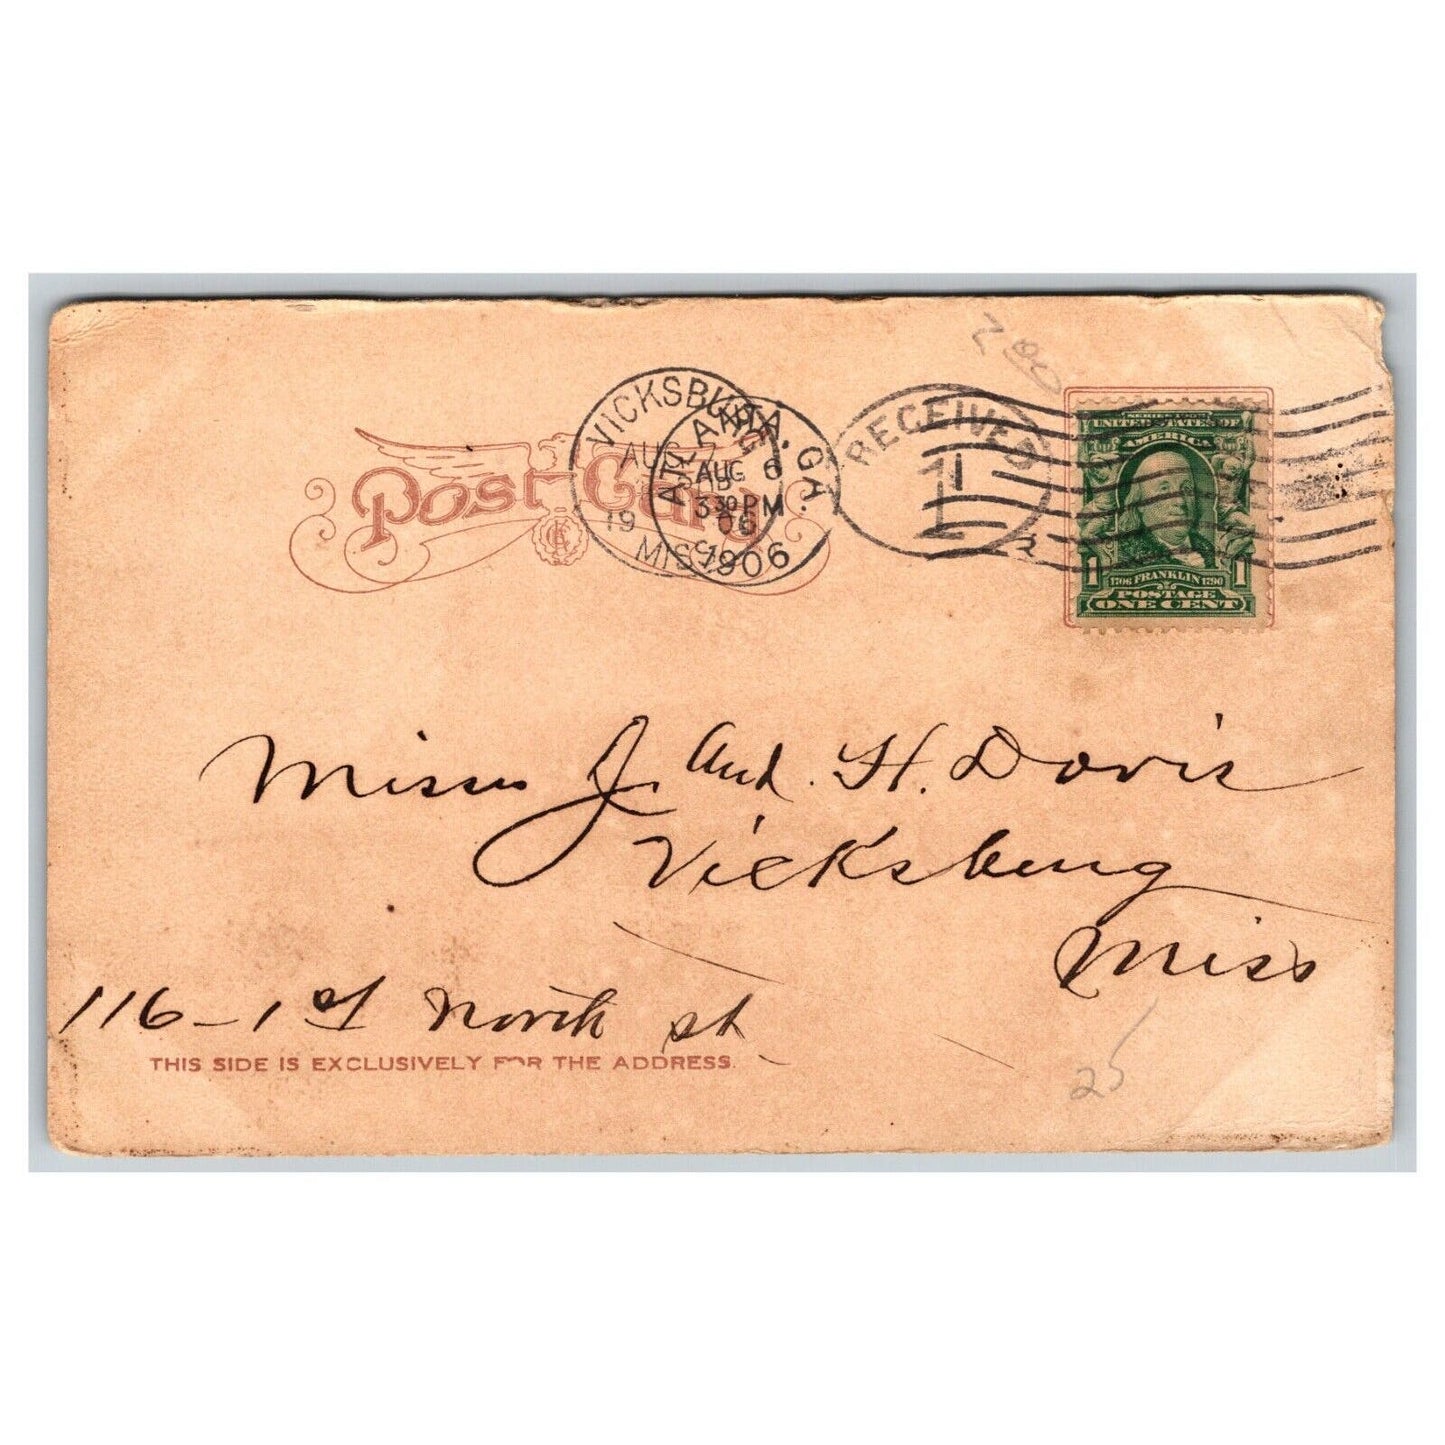 Post Card
VICKSBURG
AUG 7
1906
MISS.
ATLANTA, GA.
AUG 6
330 PM
1906
RECEIVED
1
SERIES 1902
UNITED STATES OF
AMERICA
1 1
1706 FRANKLIN 1790
POSTAGE
ONE CENT
Misses J. And. H. Davis
Vicksburg
Miss
116-1st North st
THIS SIDE IS EXCLUSIVELY FOR THE ADDRESS.
25